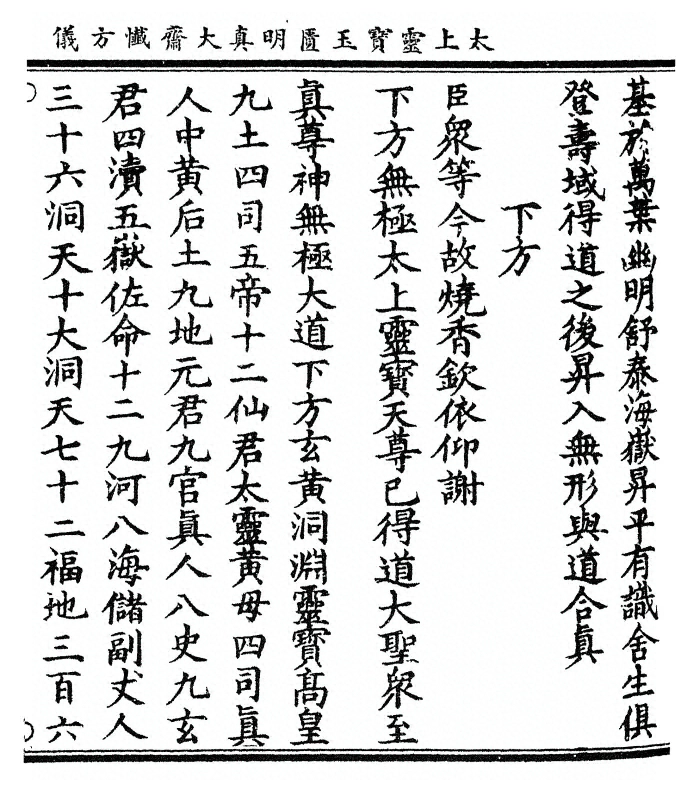 太上靈寶玉匱明真大齋懺方儀
基於萬葉幽明舒泰海嶽昇平有識含生俱
登壽域得道之後昇入無形與道合真
下方
臣眾等今故燒香欽依仰謝
下方無極太上靈寶天尊已得道大聖眾至
真尊神無極大道下方玄黃洞淵靈寶高皇
九土四司五帝十二仙君太靈黃母四司真
人中黃后土九地元君九官真人八史九玄
君四瀆五嶽佐命十二九河八海儲副丈人
三十六洞天十大洞天七十二福地三百六